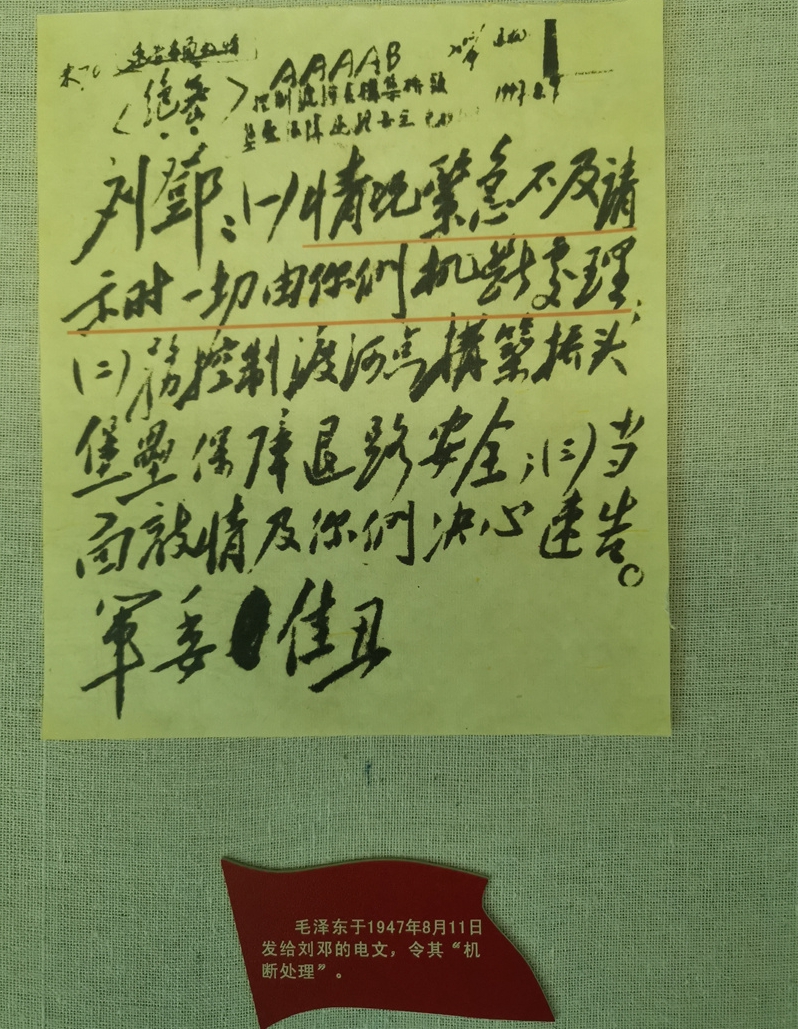 〈绝密〉 AAAAB
刘鄧：(一)情况緊急不及請
示时一切由你们机断处理；
(二)務控制渡河点構築桥头
堡壘保障退路安全；(三)当
面敌情及你们决心速告。
軍委 佳丑
毛泽东于1947年8月11日
发给刘邓的电文，令其“机
断处理”。